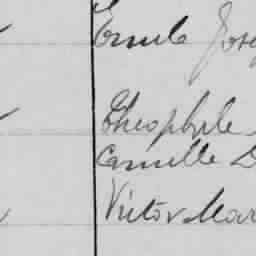 Emile Jose
Theophile
Camille D
Victor Mar